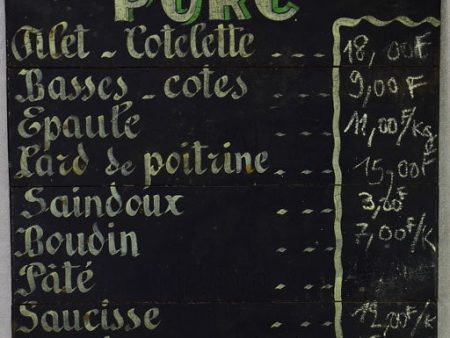 PORC
Filet - Cotelette --- 18,00F
Basses - cotes --- 9,00 F
Epaule --- 11,00F/Kg
Lard de poitrine --- 15,00F
Saindoux --- 3,00F
Boudin --- 7,00F/K
Pâté
Saucisse --- 12,00F/K